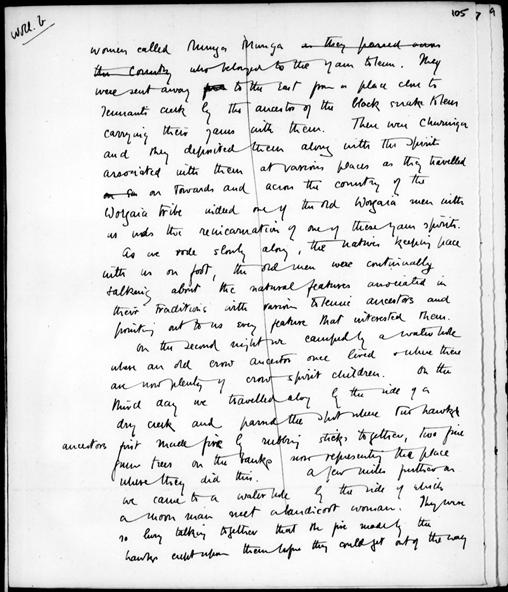 105 7 9
Wol. 6
women called Munga Munga as they passed across
the country who belonged to the yam totem. They
were sent away to the East from a place close to
Tennants creek by the ancestor of the black snake totem
carrying their yams with them. There were Churinga
and they deposited them along with the spirits
associated with them at various places as they travelled
on towards and across the country of the
Worgaia tribe indeed one of the old Worgaia men with
us was the reincarnation of one of these yam spirits.
As we rode slowly along, the natives keeping pace
with us on foot, the old men were continually
talking about the natural features associated in
their traditions with various totemic ancestors and
pointing out to us every feature that interested them.
On the second night we camped by a water hole
where an old crow ancestor once lived & where there
are now plenty of crow spirit children. On the
third day we travelled along by the side of a
dry creek and passed the spot where two hawks
ancestors first made fire by rubbing sticks together, two fine
gum trees on the banks now representing the place
where they did this. A few miles further on
we came to a water hole by the side of which
a moon man met a bandicoot woman. They were
so busy talking together that the fire made by the
hawks crept upon them before they could get out of the way